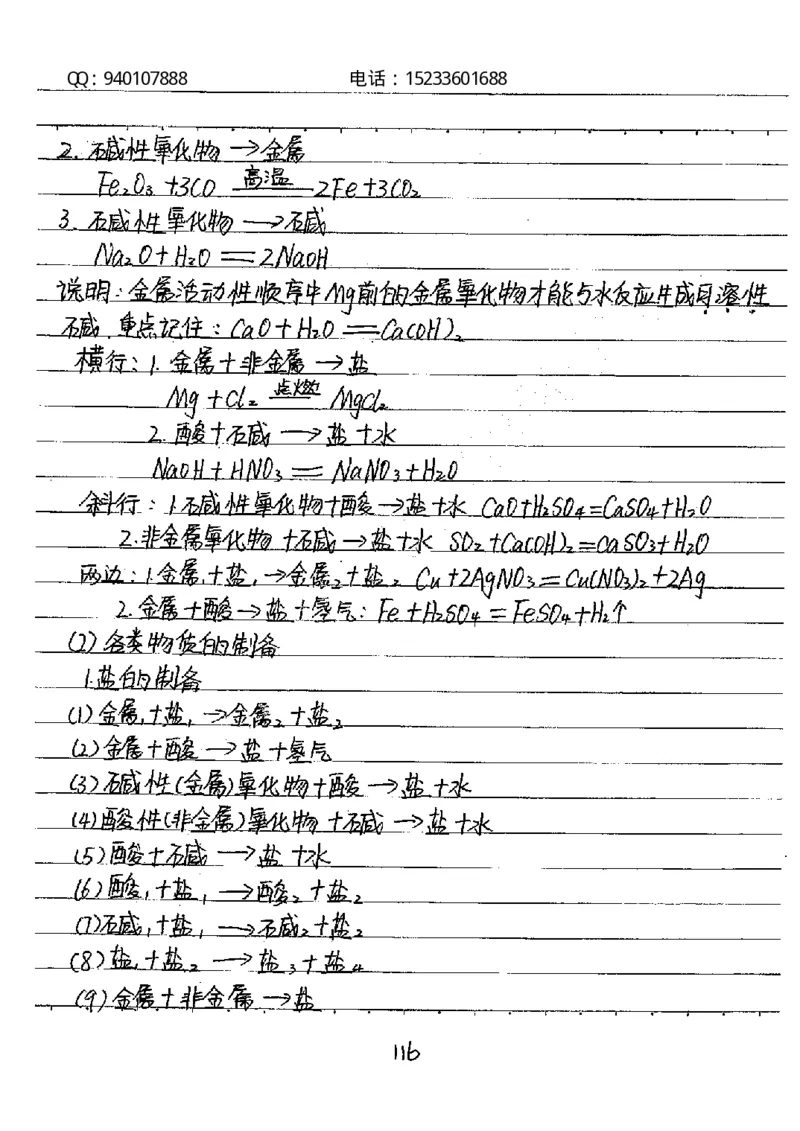 QQ：940107888 电话：15233601688
2. 碱性氧化物 → 金属
Fe₂O₃ +3CO 高温 2Fe+3CO₂
3. 碱性氧化物 → 碱
Na₂O+H₂O == 2NaOH
说明：金属活动性顺序中Mg前的金属氧化物才能与水反应生成可溶性
碱. 重点记住：CaO+H₂O == Ca(OH)₂
横行：1. 金属+非金属 → 盐
Mg+Cl₂ 点燃 MgCl₂
2. 酸+碱 → 盐+水
NaOH+HNO₃ == NaNO₃+H₂O
斜行：1.碱性氧化物+酸→盐+水 CaO+H₂SO₄=CaSO₄+H₂O
2.非金属氧化物+碱→盐+水 SO₂+Ca(OH)₂=CaSO₃+H₂O
两边：1.金属₁+盐₁→金属₂+盐₂ Cu+2AgNO₃=Cu(NO₃)₂+2Ag
2.金属+酸→盐+氢气：Fe+H₂SO₄=FeSO₄+H₂↑
(2)各类物质的制备
1.盐的制备
(1)金属₁+盐₁→金属₂+盐₂
(2)金属+酸→盐+氢气
(3)碱性(金属)氧化物+酸→盐+水
(4)酸性(非金属)氧化物+碱→盐+水
(5)酸+碱→盐+水
(6)酸₁+盐₁→酸₂+盐₂
(7)碱₁+盐₁→碱₂+盐₂
(8)盐₁+盐₂→盐₃+盐₄
(9)金属+非金属→盐
116